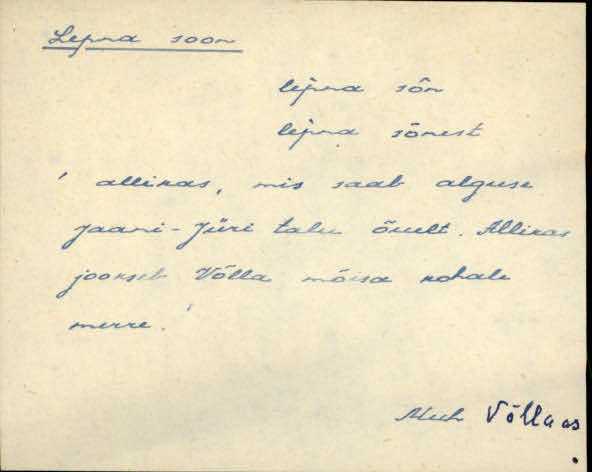 Lepna soon
lepna sōn
lepna sōnest
' allikas, mis saab alguse
Jaani-Jüri talu õuelt. Allikas
jookseb Võlla mõisa kohale
merre.'
Muh Võlla as